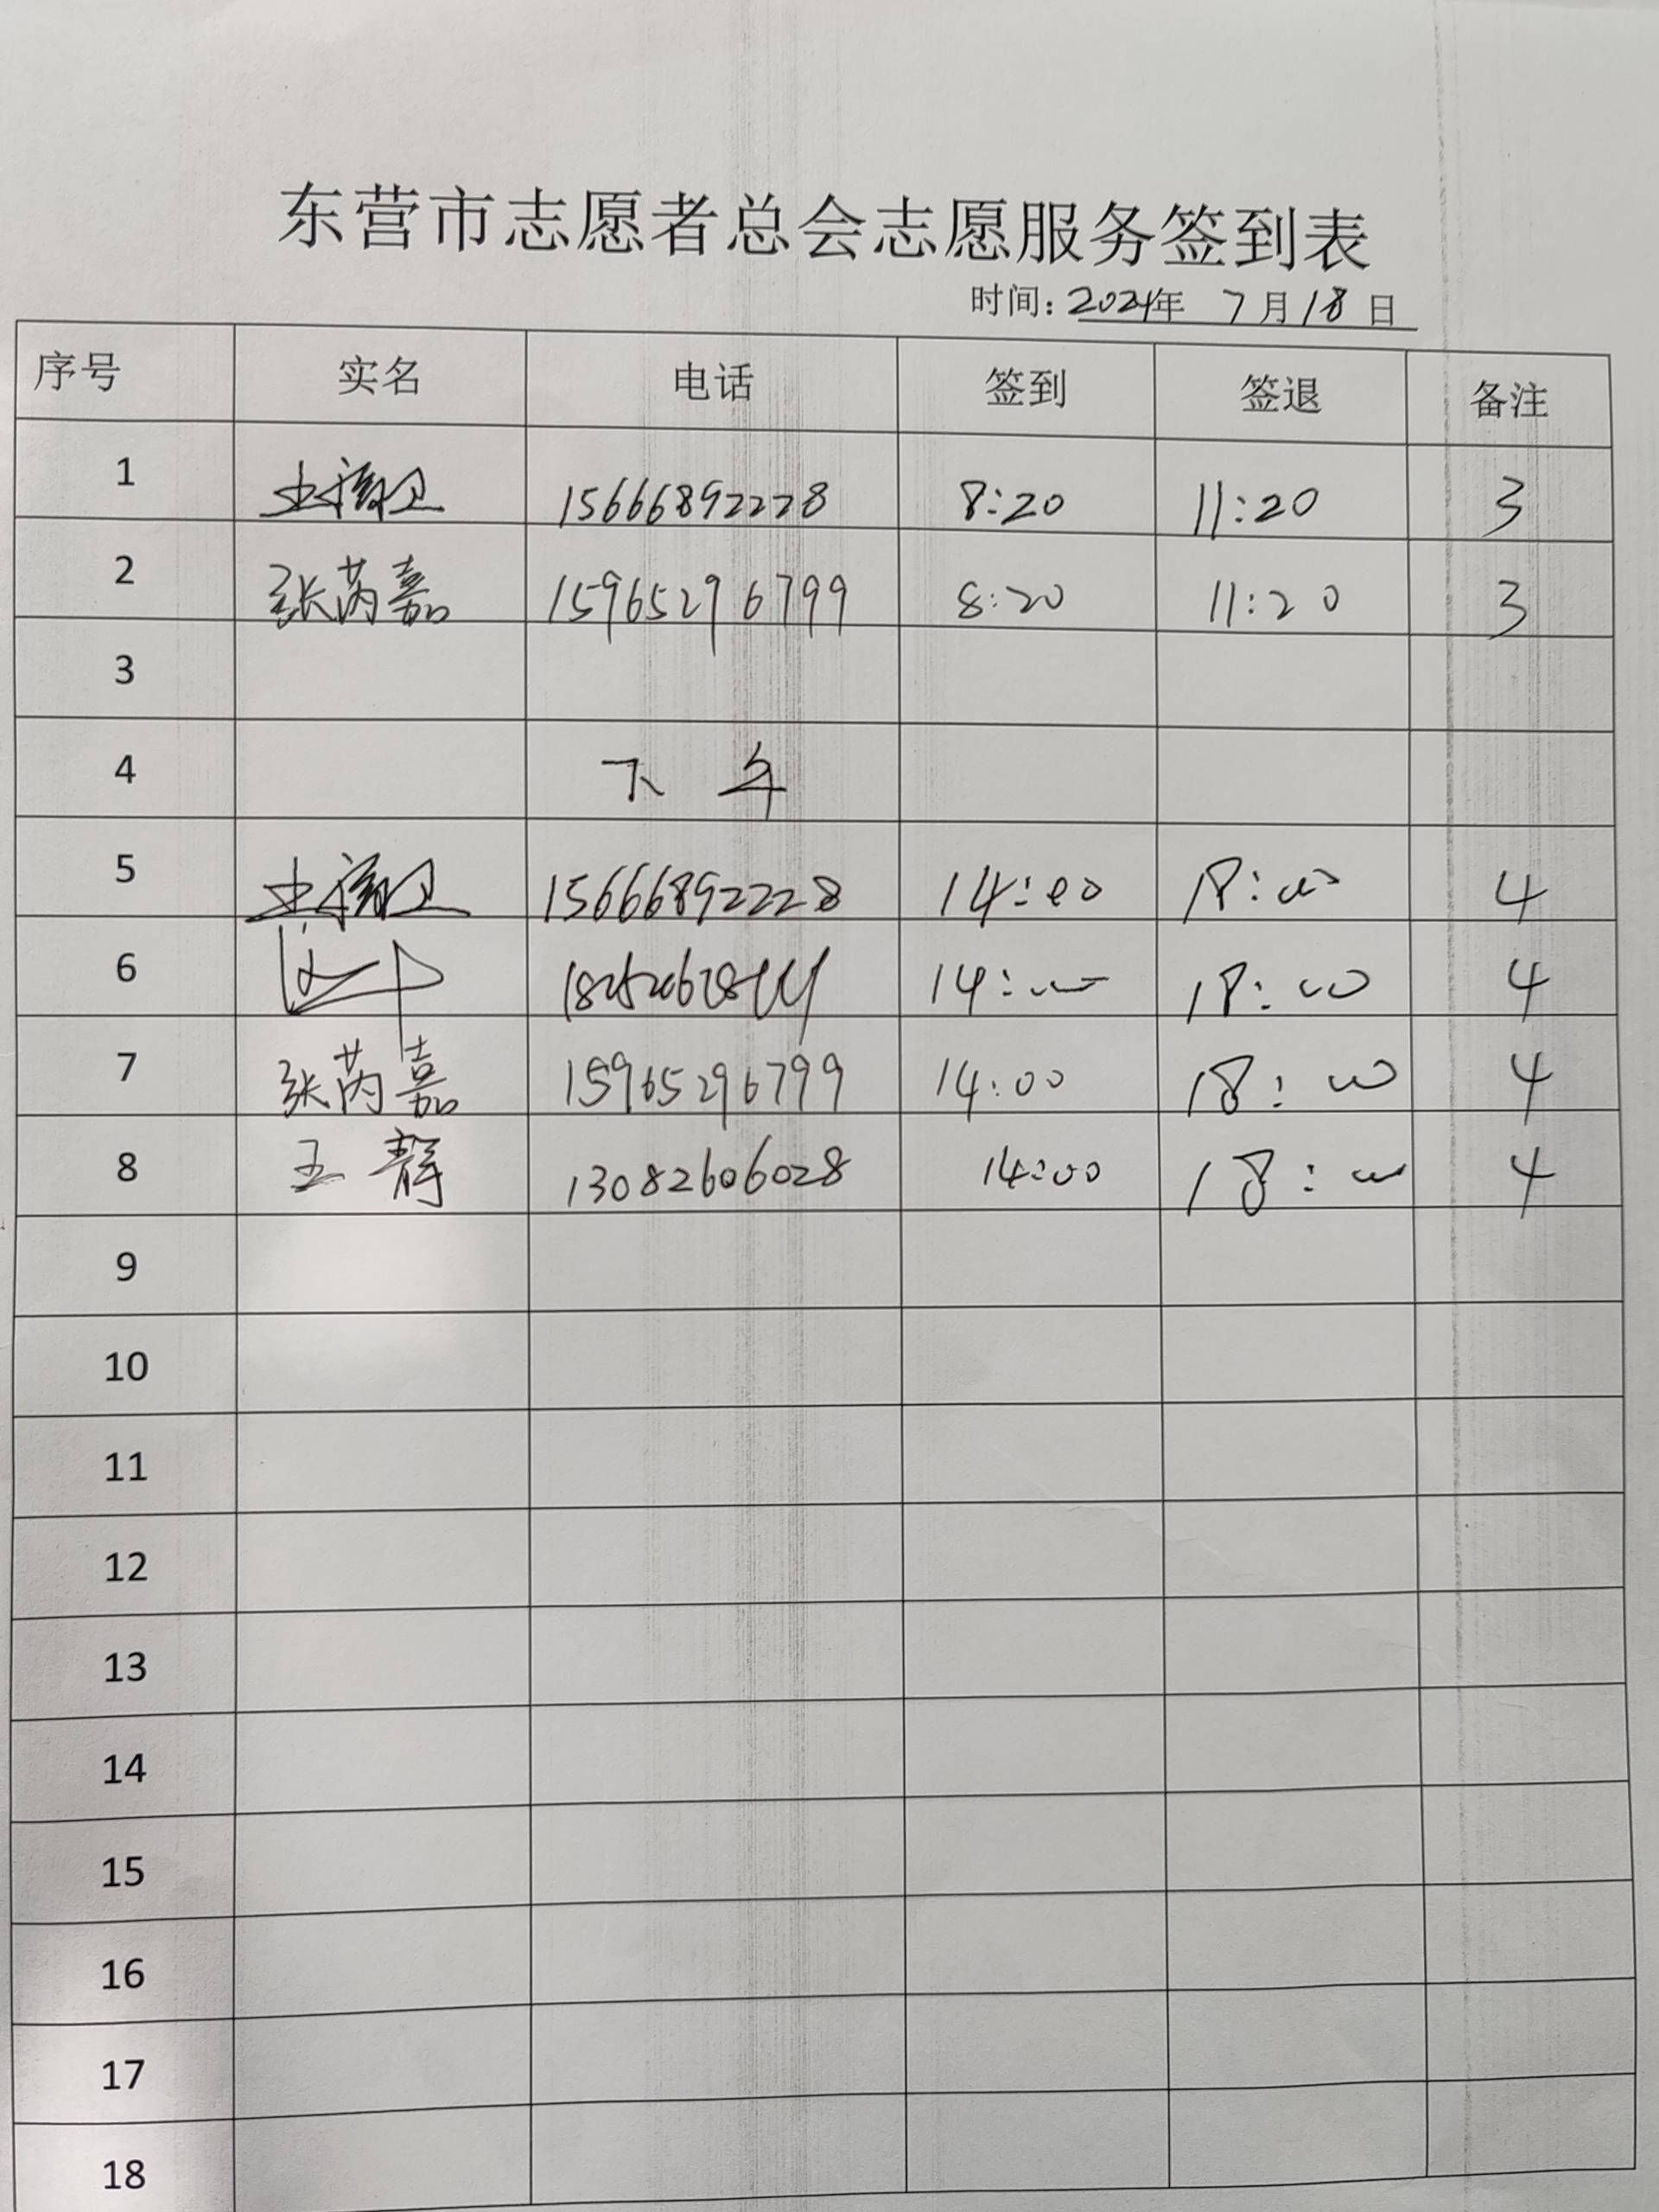 东营市志愿者总会志愿服务签到表
时间：2024年 7月18日
序号 实名 电话 签到 签退 备注
1 15666892228 8:20 11:20 3
2 张芮嘉 15965296799 8:20 11:20 3
3
4 下午
5 15666892228 14:00 18:00 4
6 14:00 18:00 4
7 张芮嘉 15965296799 14:00 18:00 4
8 王静 13082606028 14:00 18:00 4
9
10
11
12
13
14
15
16
17
18